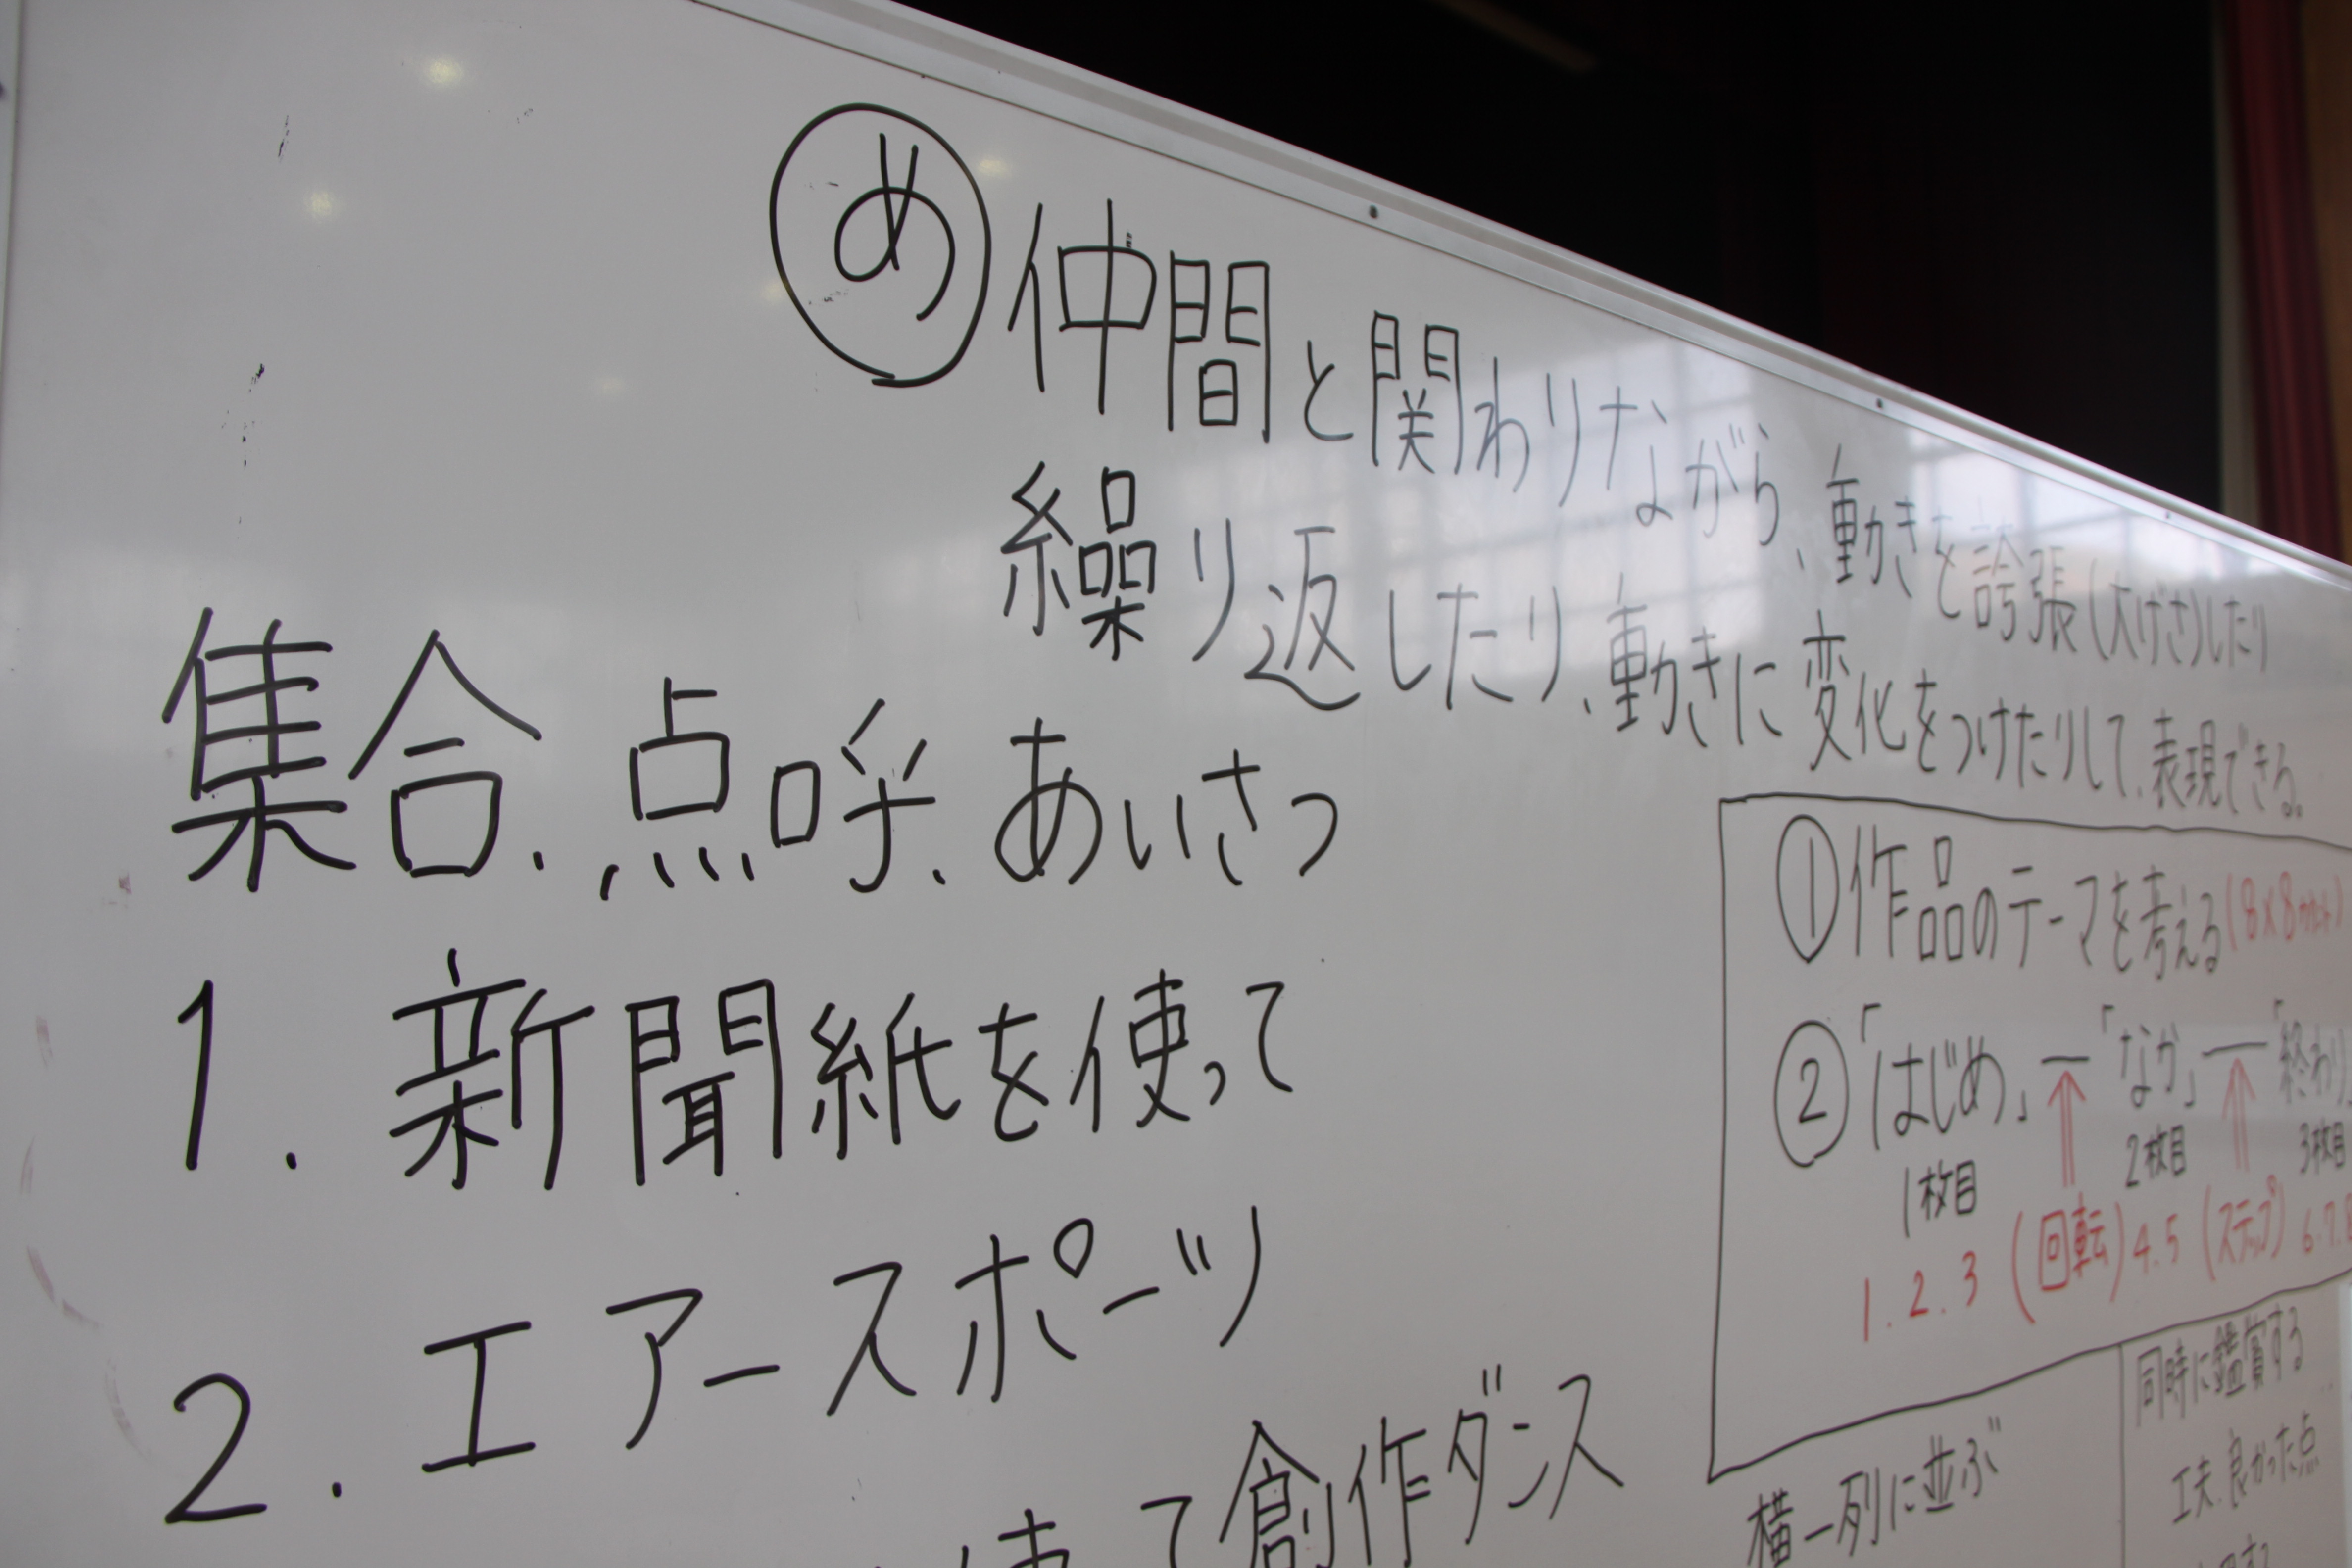 め 仲間と関わりながら、動きを誇張(大げさ)したり
繰り返したり、動きに変化をつけたりして、表現できる。
集合、点呼、あいさつ
1. 新聞紙を使って
2. エアースポーツ
使って創作ダンス
①作品のテーマを考える(8×8カウント)
②「はじめ」ー「なか」ー「終わり」
1枚目 2枚目 3枚目
1.2.3 (回転) 4.5 (ステップ) 6.7.8
横一列に並ぶ
同時に鑑賞する
工夫、良かった点